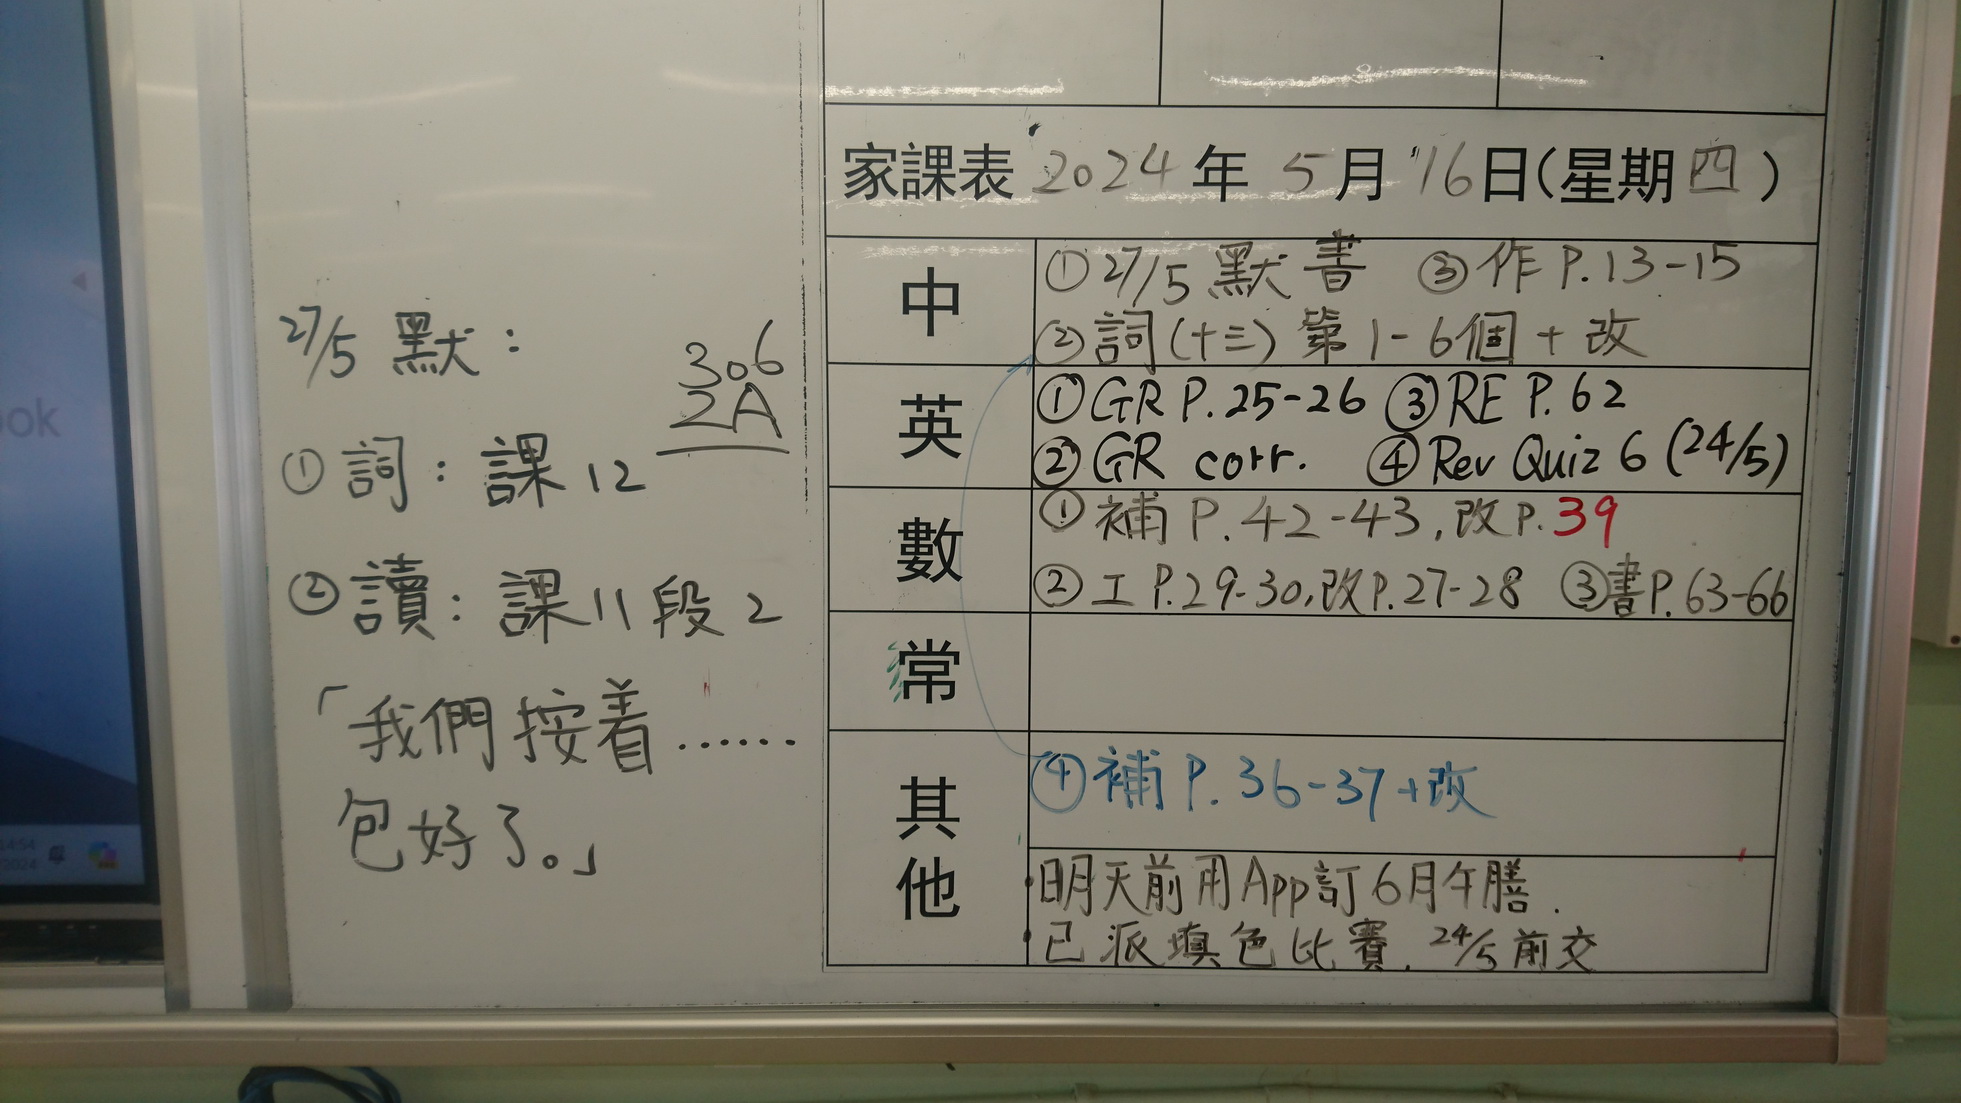 27/5 默：
306
2A
① 詞：課12
② 讀：課11段2
「我們按着……
包好了。」
家課表 2024年 5月 16日(星期四)
中
① 27/5 默書 ③ 作 P.13-15
② 詞(十三) 第1-6個 + 改
英
① GR P.25-26 ③ RE P.62
② GR corr. ④ Rev Quiz 6 (24/5)
數
① 補 P.42-43, 改P.39
② 工 P.29-30, 改P.27-28 ③ 書P.63-66
常
其他
④ 補 P.36-37+改
• 明天前用App訂6月午膳.
• 已派填色比賽. 24/5前交
ook
14:54